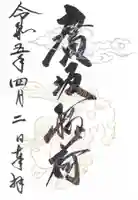 廣坂稲荷
令和五年四月二日奉拝